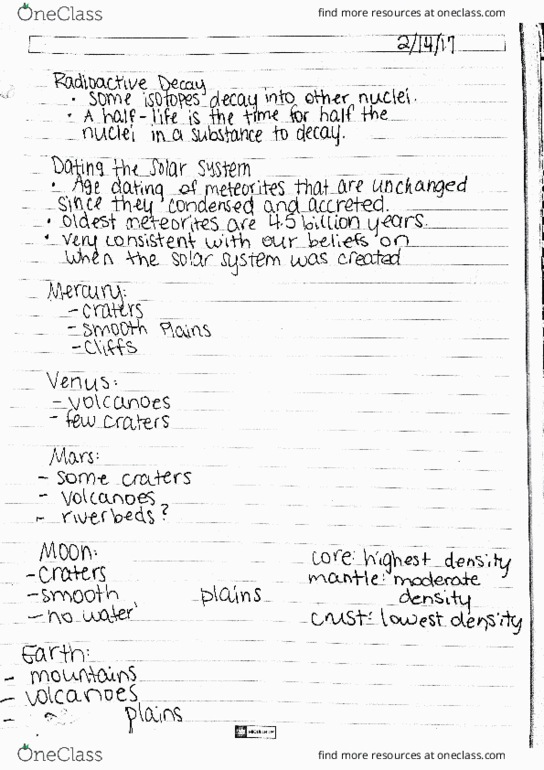 OneClass
find more resources at oneclass.com
2/14/17
Radioactive Decay
• some isotopes decay into other nuclei.
• A half-life is the time for half the
nuclei in a substance to decay.
Dating the Solar System
• Age dating of meteorites that are unchanged
since they condensed and accreted.
• oldest meteorites are 4.5 billion years.
• very consistent with our beliefs on
when the solar system was created
Mercury:
- craters
- smooth Plains
- cliffs
Venus:
- volcanoes
- few craters
Mars:
- some craters
- volcanoes
- riverbeds?
Moon:
- craters
- smooth plains
- no water
core: highest density
mantle: moderate
density
crust: lowest density
Earth:
- mountains
- volcanoes
- plains
OneClass
find more resources at oneclass.com